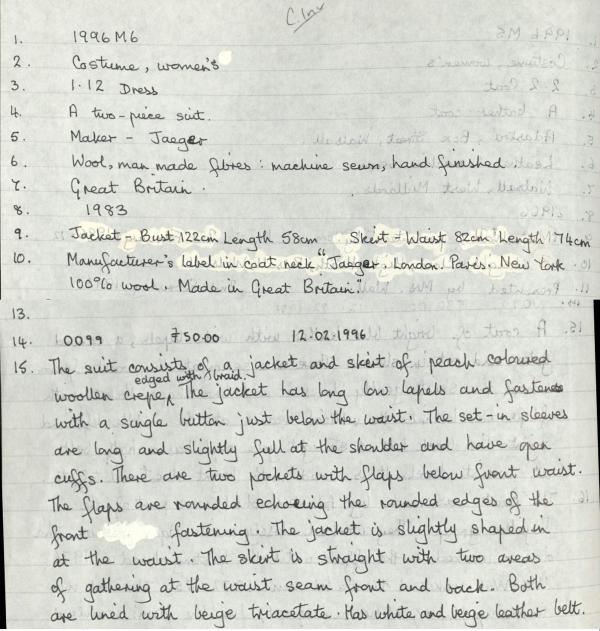 C.Inv
1. 1996M6
2. Costume, women's
3. 1.12 Dress
4. A two-piece suit.
5. Maker - Jaeger
6. Wool, man made fibres: machine sewn, hand finished
7. Great Britain.
8. 1983
9. Jacket - Bust 122cm Length 58cm Skirt - Waist 82cm Length 74cm
10. Manufacturer's label in coat neck "Jaeger. London. Paris. New York
100% wool. Made in Great Britain."
13.
14. 0099 £50.00 12.02.1996
15. The suit consists of a jacket and skirt of peach coloured
edged with braid.
woollen crepe, The jacket has long low lapels and fastens
with a single button just below the waist. The set-in sleeves
are long and slightly full at the shoulder and have open
cuffs. There are two pockets with flaps below front waist.
The flaps are rounded echoing the rounded edges of the
front fastening. The jacket is slightly shaped in
at the waist. The skirt is straight with two areas
of gathering at the waist seam front and back. Both
are lined with beige triacetate. Has white and beige leather belt.